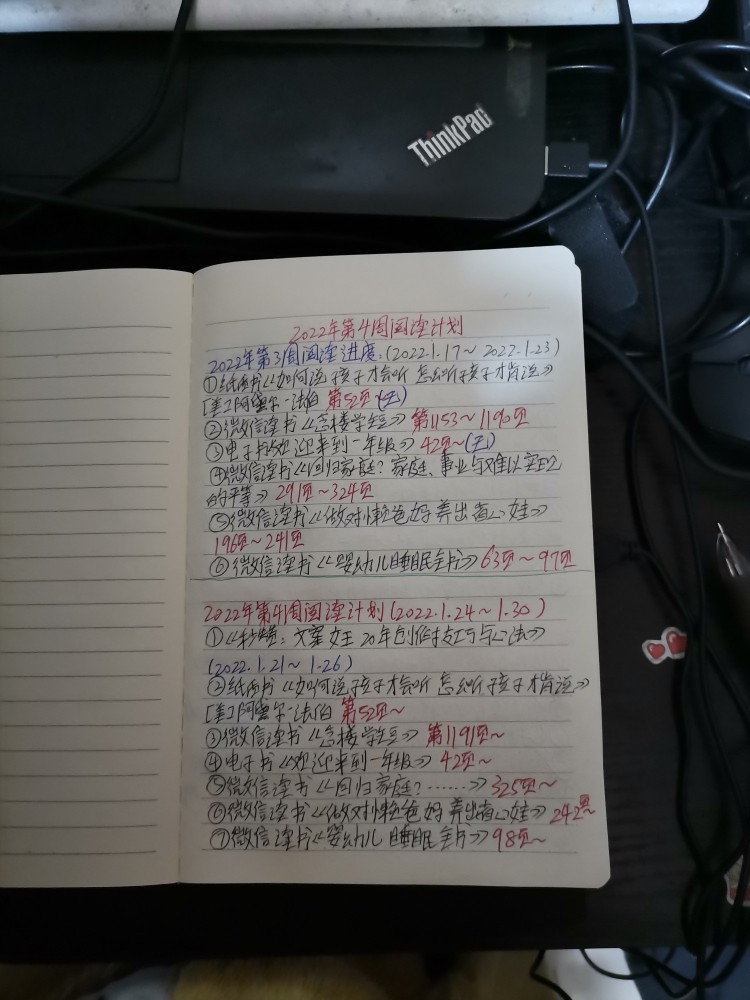 ThinkPad
2022年第4周阅读计划
2022年第3周阅读进度:(2022.1.17~2022.1.23)
①纸质书《如何说孩子才会听 怎么听孩子才肯说》
[美]阿黛尔·法伯 第52页~(无)
②微信读书《念楼学短》第1153~1190页
③电子书《欢迎来到一年级》42页~(无)
④微信读书《回归家庭?家庭、事业与难以实现
的平等》291页~324页
⑤微信读书《做对懒爸妈 养出省心娃》
196页~241页
⑥微信读书《婴幼儿睡眠全书》63页~97页
2022年第4周阅读计划(2022.1.24~1.30)
①《秒赞:文案女王20年创作技巧与心法》
(2022.1.21~1.26)
②纸质书《如何说孩子才会听 怎么听孩子才肯说》
[美]阿黛尔·法伯 第52页~
③微信读书《念楼学短》第1191页~
④电子书《欢迎来到一年级》42页~
⑤微信读书《回归家庭?……》325页~
⑥微信读书《做对懒爸妈 养出省心娃》242页~
⑦微信读书《婴幼儿睡眠全书》98页~